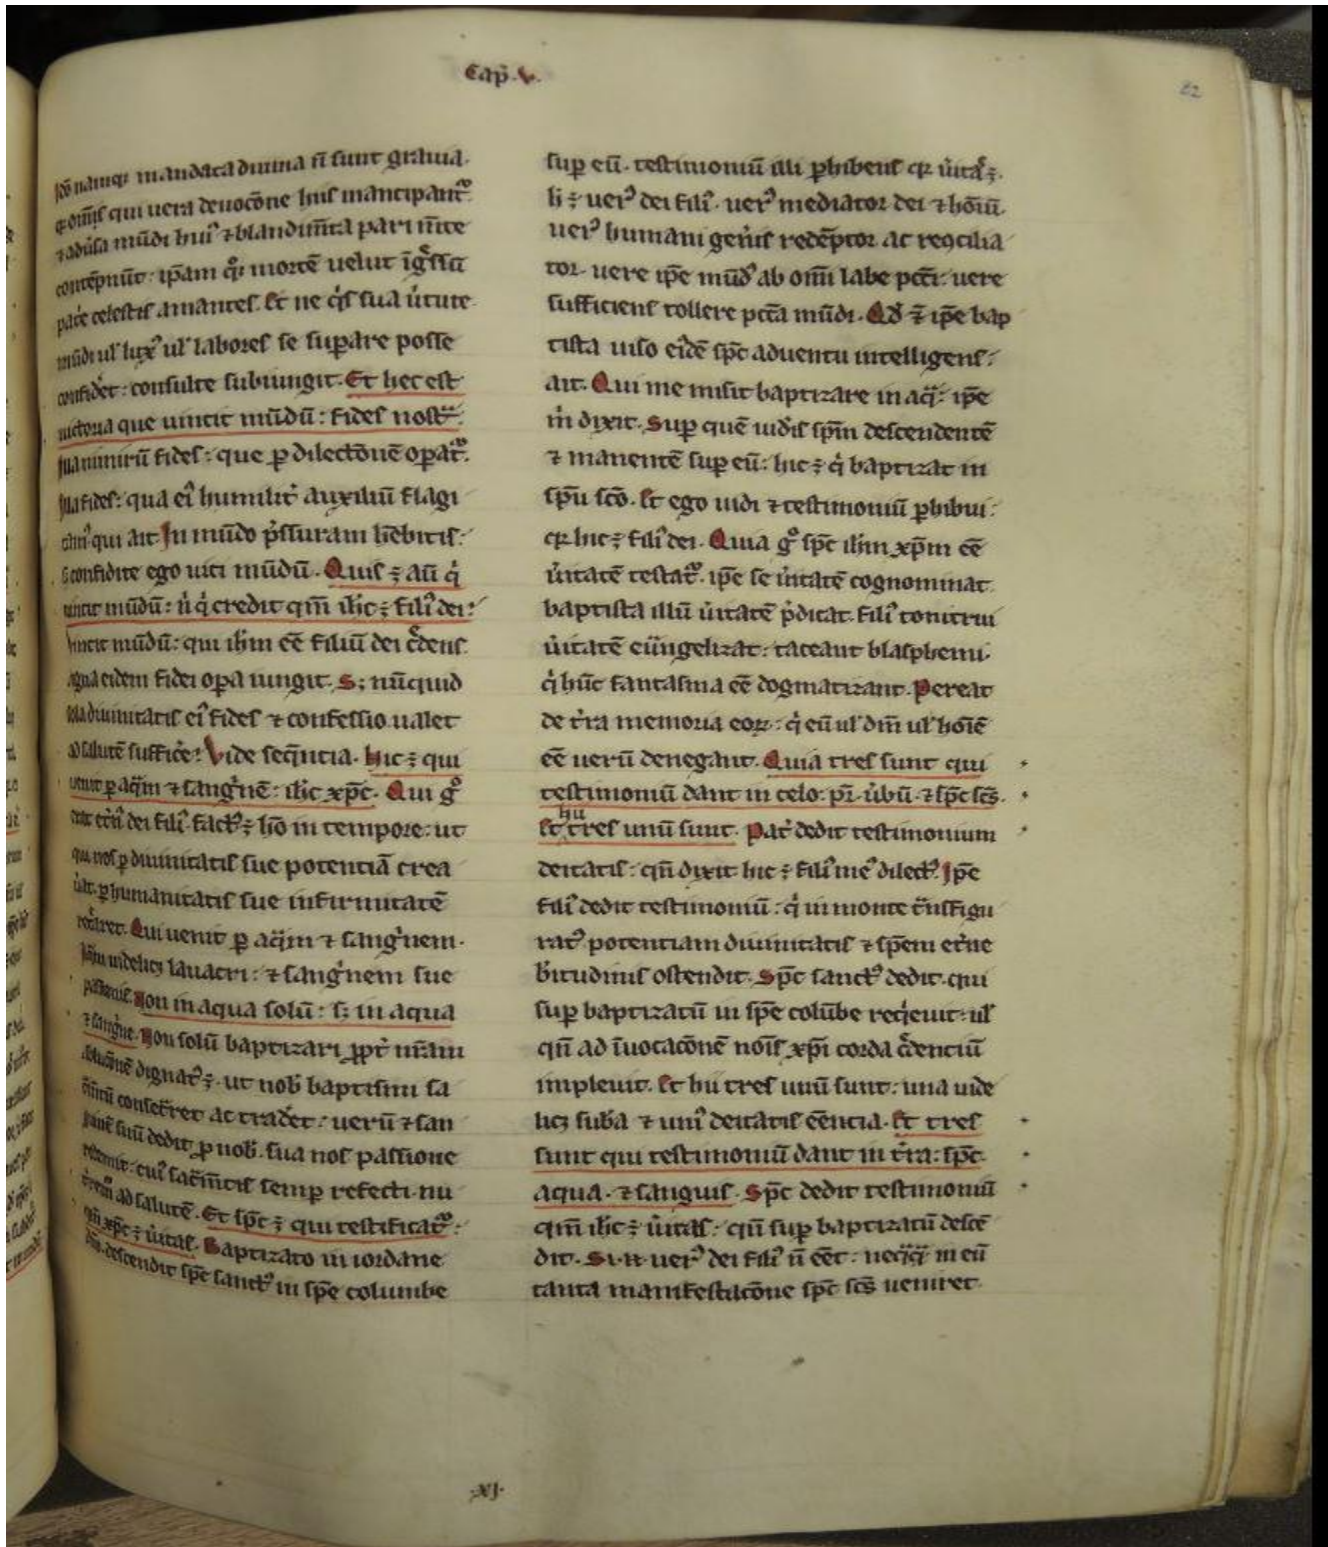 Cap̄. V.
62
Iccō namq; mandata diuina n̄ sunt grauia.
q̄ om̄is qui uera deuoc̄one hiis mancipantᷣ.
⁊ adūsa mūdi huiꝰ ⁊ blandim̄ta pari m̄te
contēpnūt: ip̄am q̊q; mortē uelut īg̊ssū
pat̄e celestis amantes. Et ne q̇s sua ůtute
mūdi ul' luxꝰ ul' labores se suꝑare posse
confidet: consulte subiungit. Et hec est
uictoria que uincit mūdū: fides nost̄.
Illa nimirū fides: que ꝑ dilectōnē oꝑatᷣ.
Illa fides: qua eiꝰ humilit̄ auxiliū flagi
tamꝰ qui ait In mūdo p̄ssuram hēbitis:
s; confidite ego uici mūdū. Quis ÷ aū q̇
uincit mūdū: n̄ q̇ credit qm̄ ih̄c ÷ filiꝰ dei?
Vincit mūdū: qui ih̄m eē filiū dei c̊dens
digna eidem fidei oꝑa iungit. S; nūquid
sola diuinitatis eiꝰ fides ⁊ confessio ualet
ad salutē suffic̄e? Vide seq̄ntia. Hic ÷ qui
uenit ꝑ aq̄m ⁊ sang̊nē: ih̄c xp̄c. Qui g̊
erat et̄nꝰ dei filiꝰ. factꝰ ÷ hō in tempore: ut
qui nos ꝑ diuinitatis sue potentiā crea
ůat. ꝑ humanitatis sue infirmitatē
rec̊aret. Qui uenit ꝑ aq̄m ⁊ sang̊nem.
aq̄m uidelic; lauacri: ⁊ sang̊nem sue
passionis. Non in aqua solū: s; in aqua
⁊ sang̊ne. Non solū baptizari ꝓpt̄ nr̄am
ablutōnē dignatꝰ ÷. ut nob̄ baptismi sa
c̄m̄tū consec̄ret ac trad̄et: uerū ⁊ san
guinē suū dedit ꝓ nob̄. sua nos passione
redimit: cuiꝰ sac̄m̄tis semꝑ refecti. nu
t̊rem̄ ad salutē. Et sp̄c ÷ qui testificatᷣ:
qm̄ xp̄c ÷ ůitas. Baptizato in iordane
dn̄o. descendit sp̄c sanctꝰ in sp̄e columbe
suꝑ eū. testimoniū illi ꝑhibens qꝛ ůitas ÷.
H ÷ uerꝰ dei filiꝰ. uerꝰ mediator dei ⁊ hōiū.
uerꝰ humani gen̄is redēptor ac reꝯcilia
tor. uere ip̄e mūdꝰ ab om̄i labe pcc̄i: uere
sufficiens tollere pcc̄a mūdi. Qd̄ ÷ ip̄e bap
tista uiso eidē sp̄c aduentu intelligens:
ait. Qui me misit baptizare in aq̄: ip̄e
m̊ dixit. Suꝑ quē uid̄is sp̄m descendentē
⁊ manentē suꝑ eū: hic ÷ q̇ baptizat in
sp̄u sc̄o. Et ego uidi ⁊ testimoniū ꝑhibui:
qꝛ hic ÷ filiꝰ dei. Quia g̊ sp̄c ih̄m xp̄m eē
ůitatē testatᷣ. ip̄e se ůitatē cognominat.
baptista illū ůitatē p̄dicat. filiꝰ tonitrui
ůitatē eūngelizat: taceant blasphemi.
q̇ hūc fantasma eē dogmatizant. Pereat
de t̄ra memoria eoꝝ: q̇ eū ul' dm̄ ul' hoīē
eē uerū denegant. Quia tres sunt qui
testimoniū dant in celo: pr̄. ůbū. ⁊ sp̄c sc̄s.
hii
Et tres unū sunt. Pat̄ dedit testimonium
deitatis: qn̄ dixit hic ÷ filiꝰ meꝰ dilectꝰ. Ip̄e
filiꝰ dedit testimoniū: q̇ in monte t̄nsfigu
ratꝰ potentiam diuinitatis ⁊ sp̄em et̄ne
b̄itudinis ostendit. Sp̄c sanctꝰ dedit. qui
suꝑ baptizatū in sp̄e colūbe req̇euit: ul'
qn̄ ad īuocac̄onē noīs xp̄i corda c̊dentiū
impleuit. Et hii tres unū sunt: una uide
lic; sub̄a ⁊ uniꝰ deitatis eēncia. Et tres
sunt qui testimoniū dant in t̄ra: sp̄c.
aqua. ⁊ sanguis. Sp̄c dedit testimoniū
qm̄ ih̄c ÷ ůitas: qn̄ suꝑ baptizatū descē
dit. Si .n. uerꝰ dei filiꝰ n̄ eēt: neq̄q̄ in eū
tanta manifestac̄one sp̄c sc̄s ueniret.
.XI.